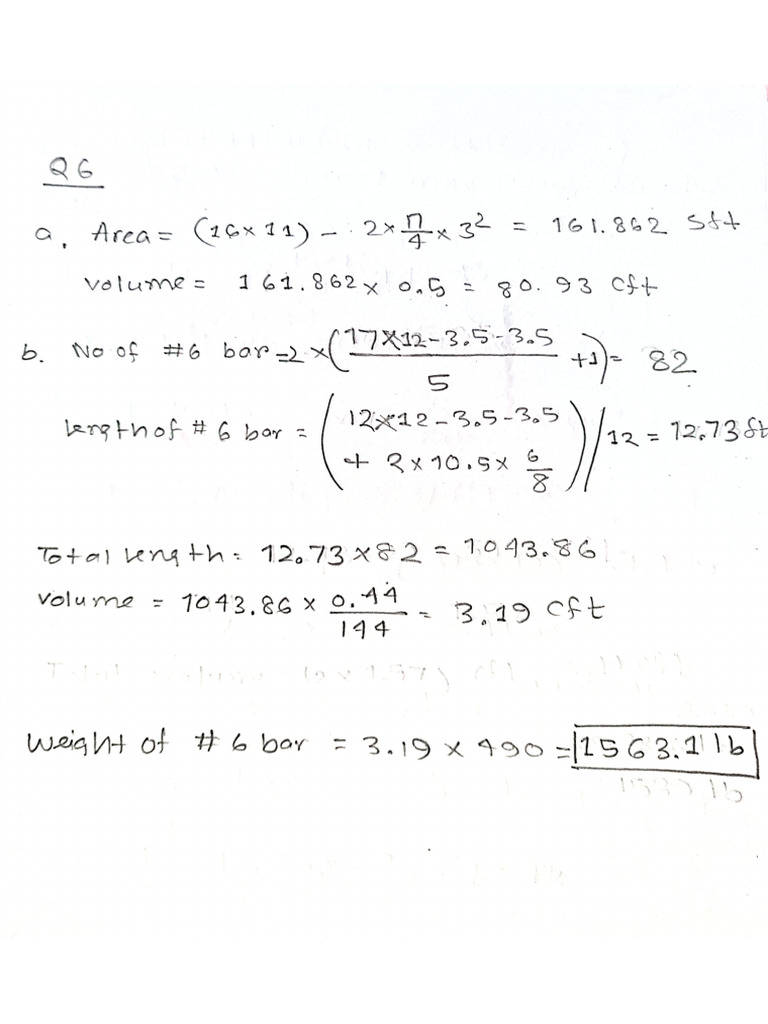 Q6
a. Area = (16×11) - 2×π/4×3² = 161.862 sft
volume = 161.862×0.5 = 80.93 cft
b. No of #6 bar = 2×(17×12-3.5-3.5/5+1) = 82
length of #6 bar = (12×12-3.5-3.5
+ 2×10.5×6/8)/12 = 12.73 ft
Total length = 12.73×82 = 1043.86
volume = 1043.86×0.44/144 = 3.19 cft
Weight of #6 bar = 3.19×490 = 1563.1 lb